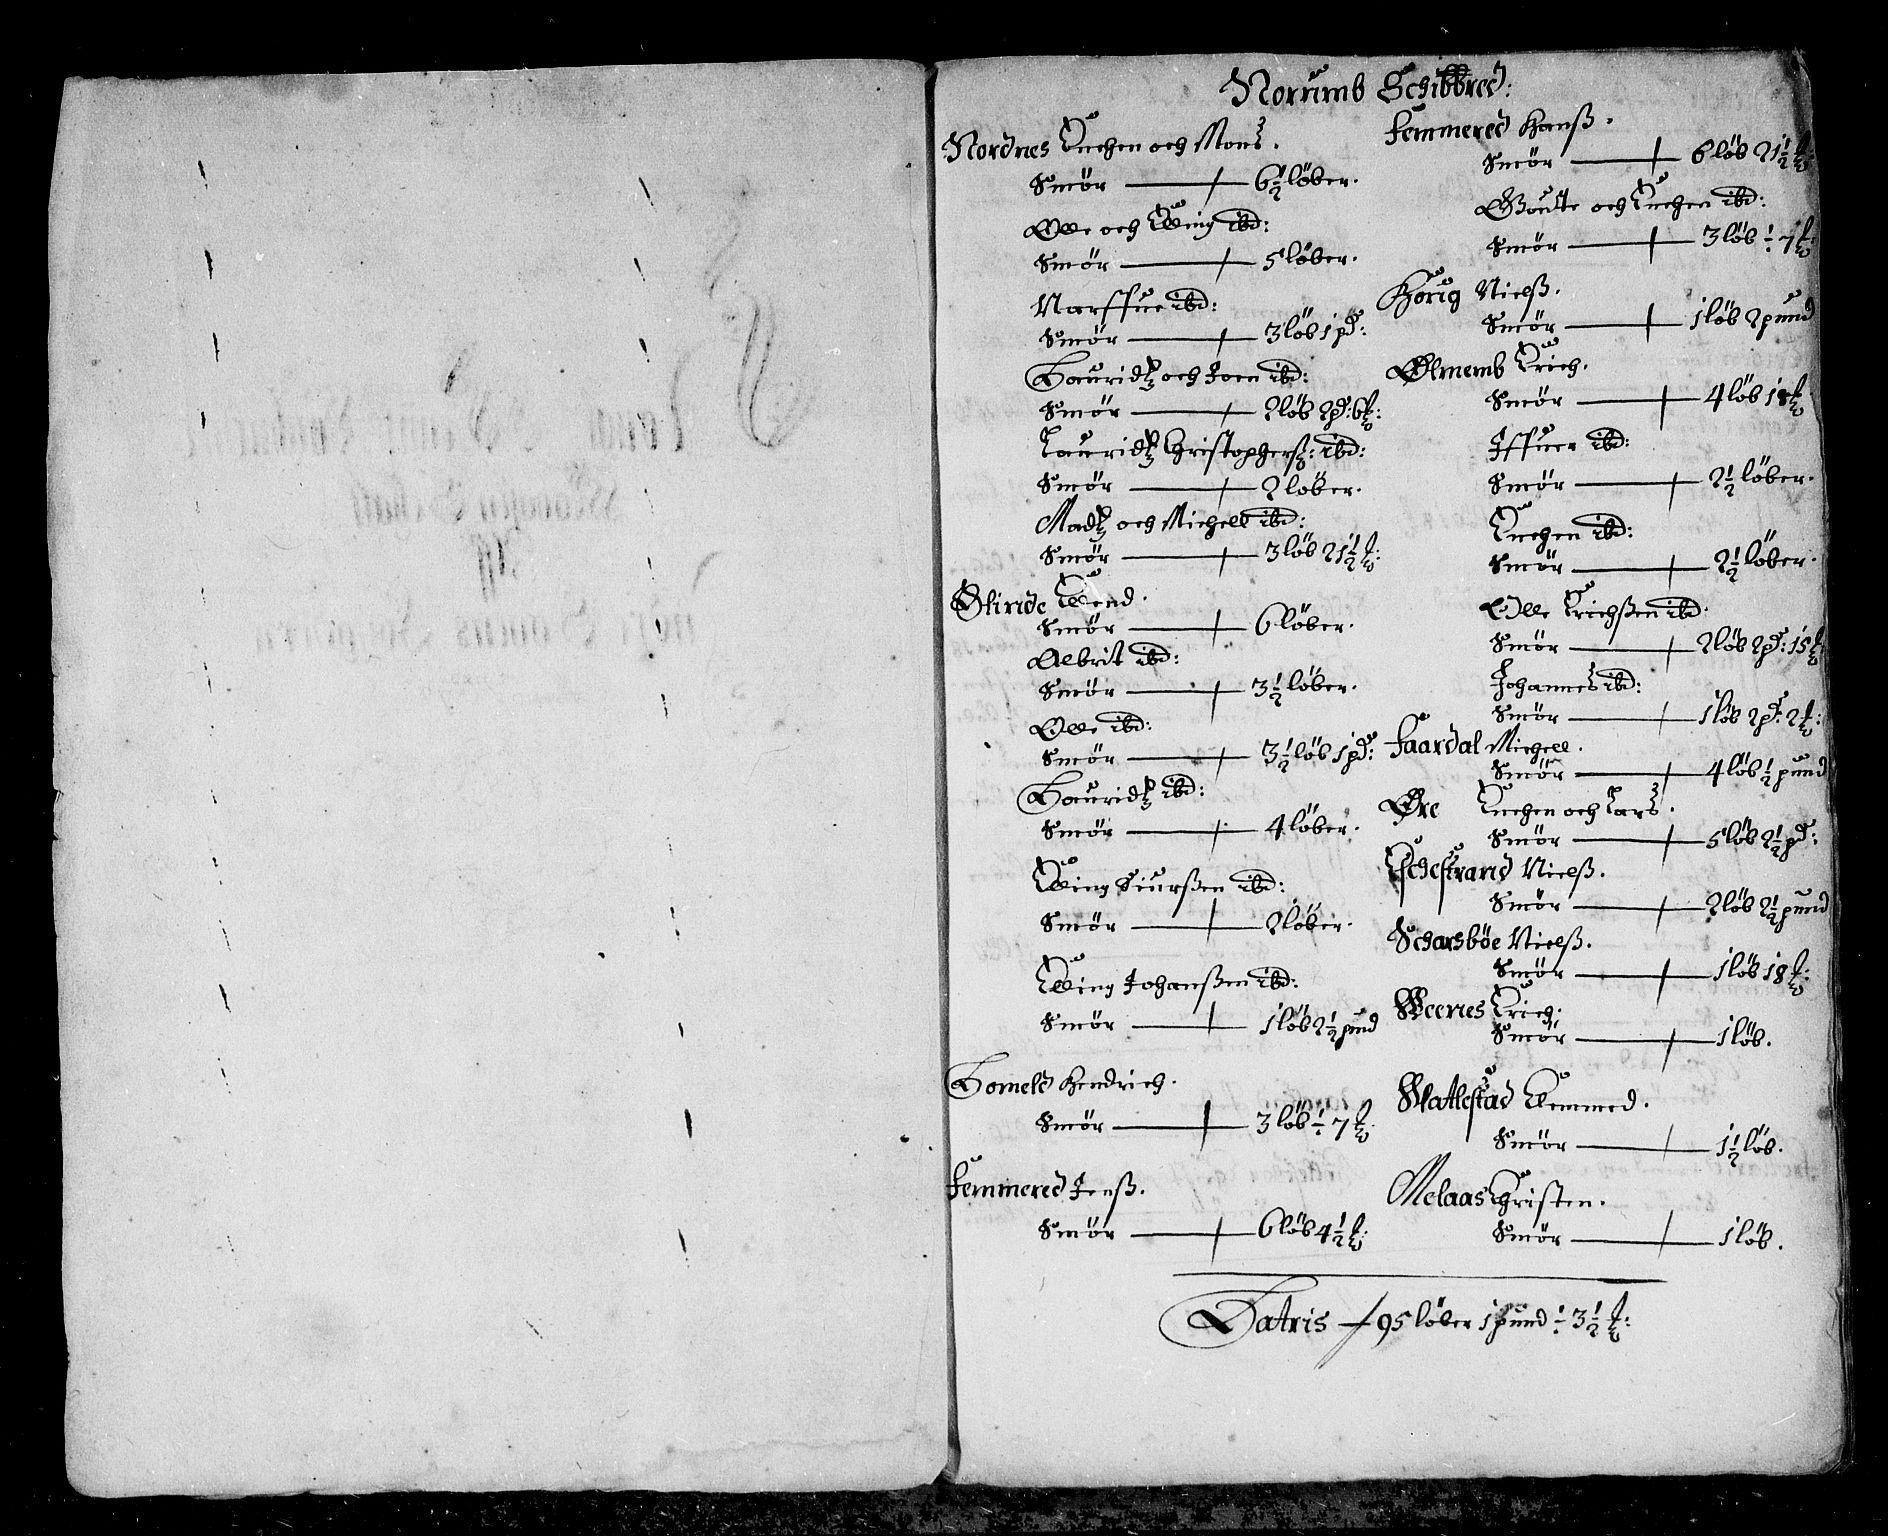 Norrimb Schibbred:
Nordnes Knehen och Mons.
Smör 6½ löber.
Olle och Elling ibd:
Smör 5 löber.
Narffue ibd:
Smör 3 löb 1 pd:
Lauridtz och Joen ibd:
Smör 2 löb 2 pd: 6 ℔:
Lauridtz Christophersß: ibd:
Smör 2 löber.
Madtz och Michell ibd:
Smör 3 löb 21½ ℔:
Slinde Ellend.
Smör 6 löber.
Olbrit ibd:
Smör 3½ löber.
Olle ibd:
Smör 3½ löb 1 pd:
Lauridtz ibd:
Smör 4 löber.
Elling Siurßen ibd:
Smör 2 löber.
Elling Johanßen ibd:
Smör 1 löb 2½ pund
Lomeld Hendrich.
Smör 3 löb ÷ 7 ℔
Femmered Jenß.
Smör 6 löb 4½ ℔:
Femmered Hanß.
Smör 6 löb 21½ ℔:
Goute och Knehen ibd:
Smör 3 löb ÷ 7 ℔:
Hörig Nielß.
Smör 1 löb 2 pund
Ølmemb Erich.
Smör 4 löb 18 ℔
Iffuer ibd:
Smör 2½ löber.
Knehen ibd:
Smör 2½ löber.
Olle Erichßen ibd.
Smör 2 löb 2 pd: 15 ℔
Johannes ibd:
Smör 1 löb 2 pd: 2 ℔:
Faardal Michell.
Smör 4 löb ½ pund
Øre Knehen och Lars.
Smör 5 löb 2½ pd:
Eschestrand Nielß.
Smör 2 löb 2½ pund
Scharsböe Nielß.
Smör 1 löb 18 ℔:
Weenes Erich.
Smör 1 löb.
Slattestad Ellemmed.
Smör 1½ löb.
Melaas Christen.
Smör 1 löb.
Latris 95 löber 1 pund ÷ 3½ ℔: